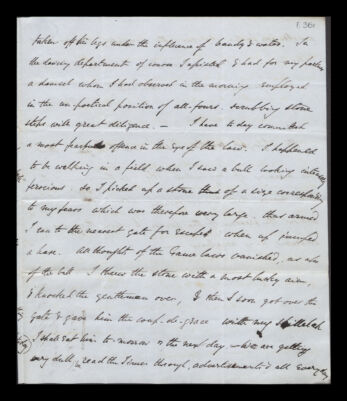 1.36r
taken off his legs under the influence of brandy & water. In
the dancing department of course I assisted & had for my partner
a damsel whom I had observed in the morning employed
in the un poetical position of all-fours. scrubbing stone
steps with great diligence. — I have to day committed
a most fearful offence in the eye of the law. I happened
to be walking in a field when I saw a bull looking intensely
ferocious, so I picked up a stone of a size corresponding
to my fears which was therefore very large. thus armed
I ran to the nearest gate for escape when up jumped
a hare. All thought of the Game laws vanished, as also
of the bull. I threw the stone with a most lucky aim,
& knocked the gentleman over, & then I soon got over the
gate & gave him the coup-de-grace with my shillelah
I shall eat him to-morrow & the next day — We are getting
very dull, read the Times through, advertisements & all every day